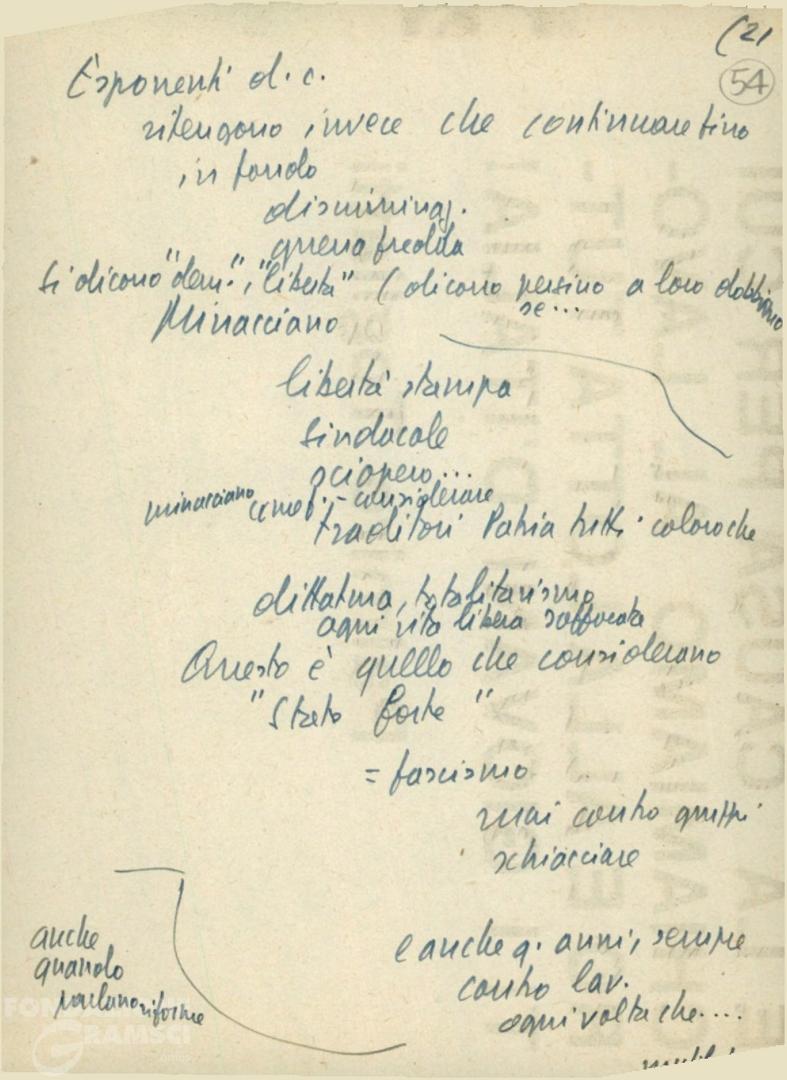 (21
54
Esponenti d.c.
ritengono invece che continuare fino
in fondo
discriminaz.
guerra fredda
Si dicono "dem.", "libertà" (dicono persino a loro dobbiamo
se...
Minacciano
libertà stampa
sindacale
sciopero...
minacciano considerare
traditori Patria tutti coloro che
dittatura, totalitarismo
ogni vita libera soffocata
Questo è quello che considerano
"Stato forte"
= fascismo
mai contro gruppi
schiacciare
anche
quando
parlano riforme
e anche q. anni, sempre
contro lav.
ogni volta che....
FONDAZIONE
GRAMSCI